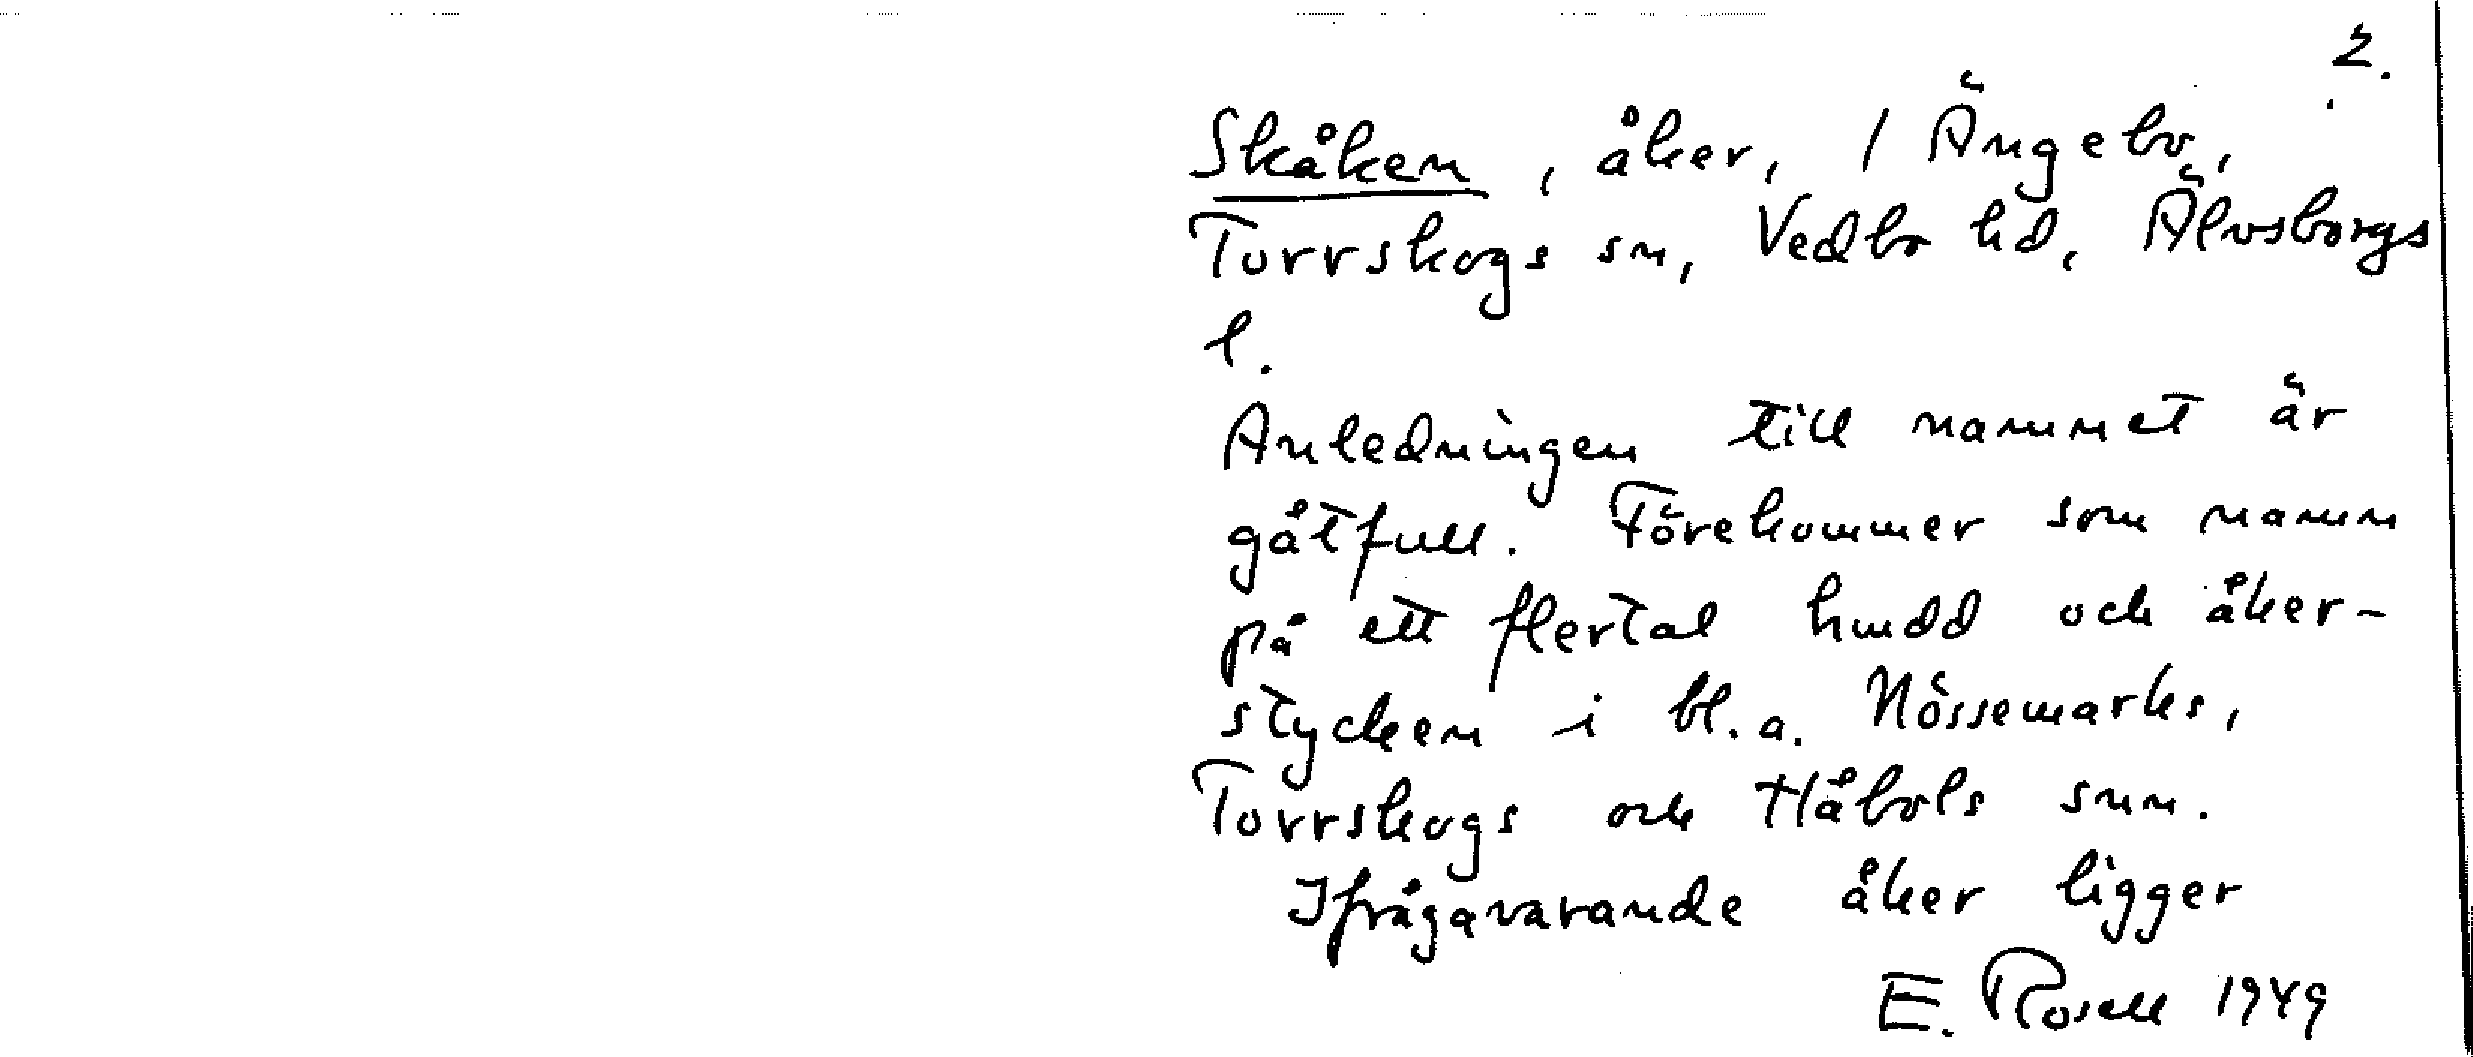 2.
Skåken, åker, / Ängebo,
Torrskogs sn, Vedbo hd, Älvsborgs
l.
Anledningen till namnet är
gåtfull. Förekommer som namn
på ett flertal hmdd och åker-
stycken i bl.a. Nössemarks,
Torrskogs och Håbols snn.
Ifrågavarande åker ligger
E. Rosell 1949